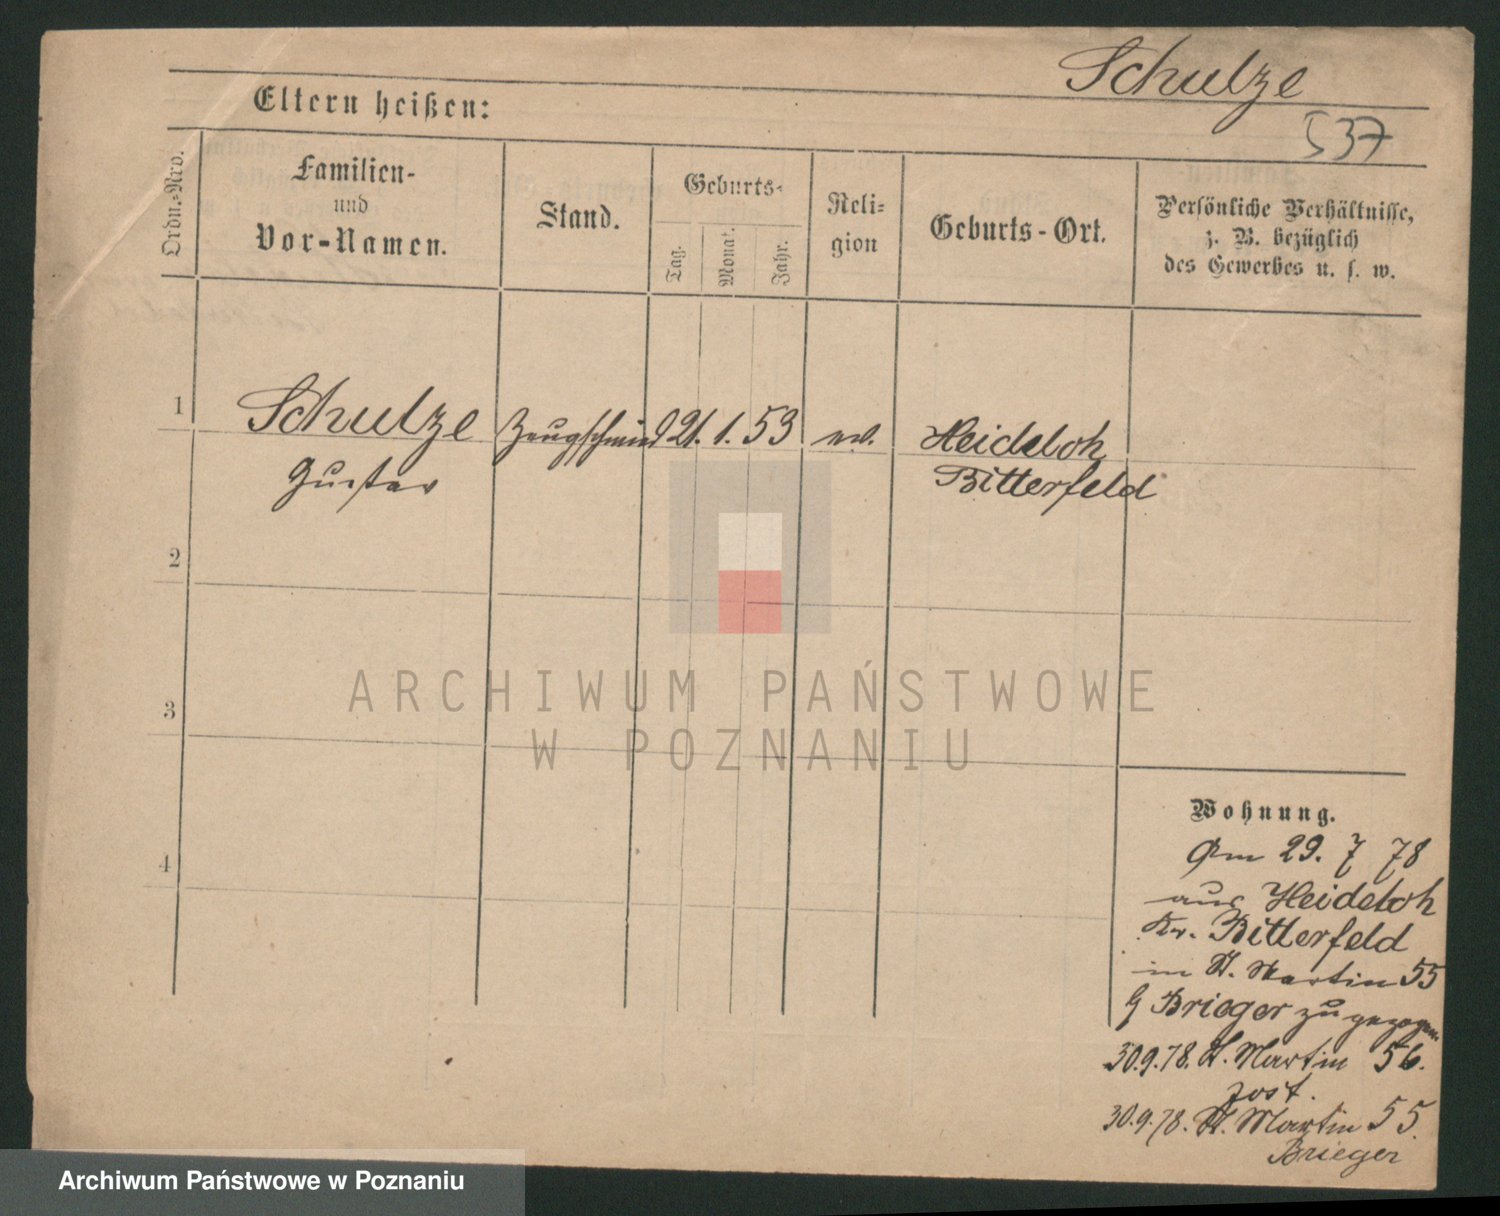 Schulze
537
Eltern heißen:
Ordn.-Nro.
Familien-
und
Vor-Namen.
Stand.
Geburts-
Tag.
Monat.
Jahr.
Reli-
gion
Geburts-Ort.
Persönliche Verhältnisse,
z. B. bezüglich
des Gewerbes u. s. w.
1
Schulze Zeugschmied 21. 1. 53 ev. Heideloh
Gustav Bitterfeld
2
3
4
Wohnung.
Am 29. 7 78
aus Heideloh
Kr. Bitterfeld
in St. Martin 55
Brieger zugezogen.
30.9.78. St. Martin 56.
Jost.
30.9.78. St. Martin 55.
Brieger
ARCHIWUM PAŃSTWOWE
W POZNANIU
Archiwum Państwowe w Poznaniu